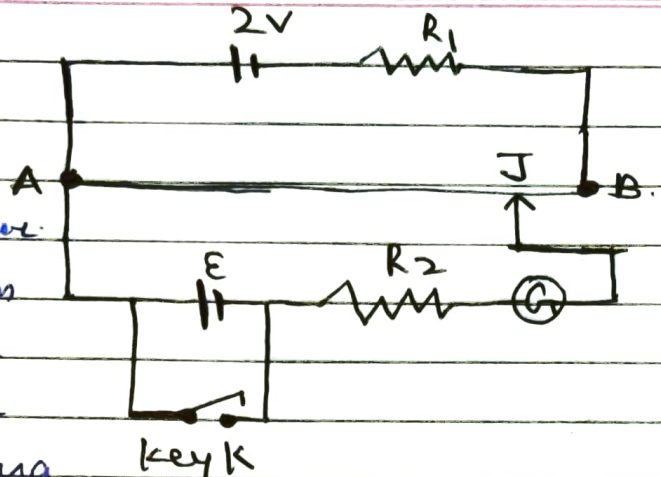 2V R1
A J B.
ε R2
G
Key K